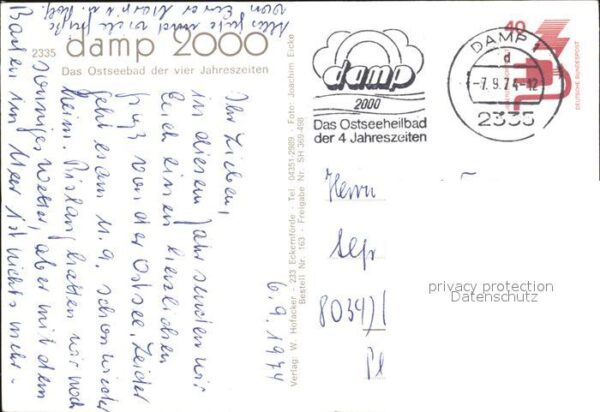 Alles Gute und viele Grüße
von Eurer
2335 damp 2000
Das Ostseebad der vier Jahreszeiten
6.9.1974
Ihr Lieben,
in diesem Jahr senden wir
Euch einen herzlichen
Gruß von der Ostsee. Leider
geht es am 11.9. schon wieder
heim. Bislang hatten wir noch
sonniges Wetter, aber mit dem
Baden im Meer ist nichts mehr.
Verlag W. Hofacker - 233 Eckernförde - Tel. 04351 2989 - Foto: Joachim Eicke
Bestell Nr. 163 - Freigabe Nr. SH 369-498
damp
2000
Das Ostseeheilbad
der 4 Jahreszeiten
DAMP
d
-7.9.74-12
2335
40
DEUTSCHE BUNDESPOST
Herrn
8034
privacy protection
Datenschutz